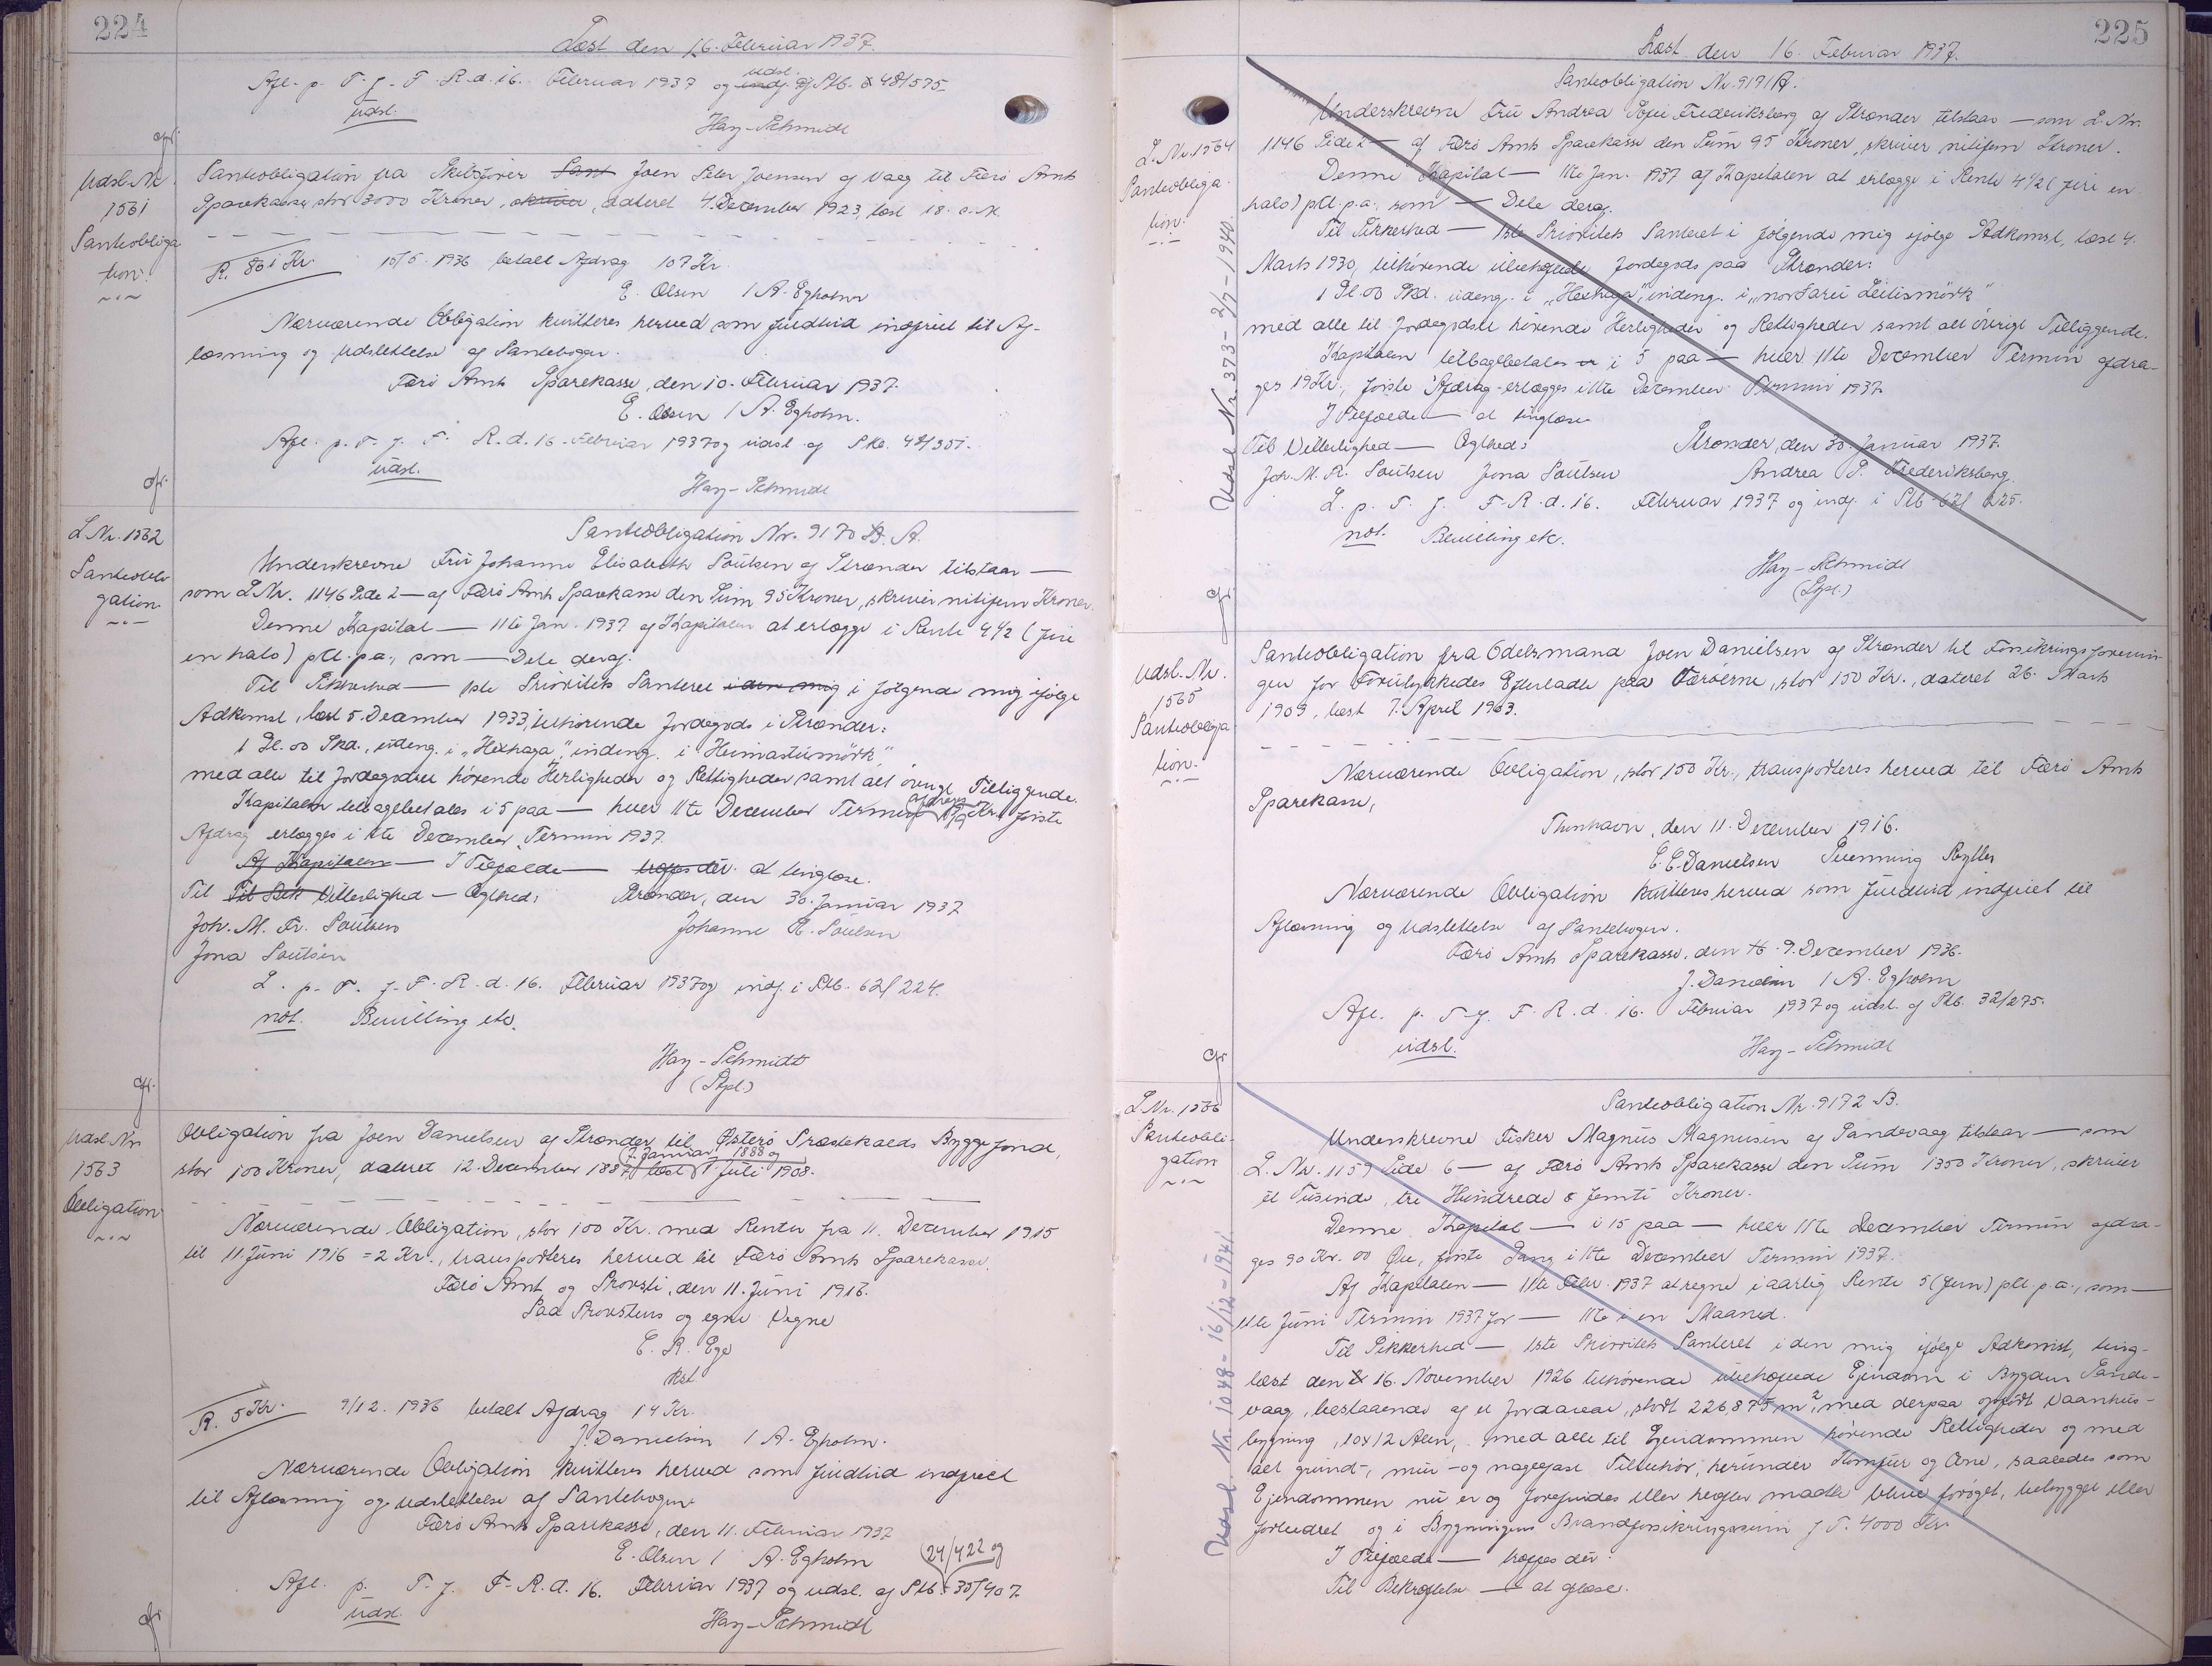 224
Læst den 16. Februar 1937.
Afl. p. T. f. F. R. d. 16. Februar 1937 og indf. udsl. af Ptb. 48/575.
udsl. Hay-Schmidt
Udsl. Nr. 1561 Panteobligation.
Panteobligation fra Skibsfører Joen Peter Joensen af Vaag til Færø Amts
Sparekasse, stor 3000 Kroner, dateret 4. December 1923, læst 18. s.M.
R. 801 Kr. 10/6 1936 betalt Afdrag 107 Kr.
E. Olsen / A. Egholm
Nærværende Obligation kvitteres herved som fuldtud indfriet til Af-
læsning og Udslettelse af Pantebogen.
Færø Amts Sparekasse, den 10. Februar 1937.
E. Olsen / A. Egholm.
Afl. p. T. f. F. R. d. 16. Februar 1937 og udsl. af Ptb. 48/301.
udsl.
Hay-Schmidt
L. Nr. 1562 Panteobligation
Panteobligation Nr. 9170 A.
Underskrevne Fru Johanne Elisabeth Poulsen af Strænder tilstaar —
som L. Nr. 1146 Side 2 — af Færø Amts Sparekasse den Sum 95 Kroner, skriver nitifem Kroner.
Denne Kapital — 11te Jan. 1937 af Kapitalen at erlægge i Rente 4 1/2 (fire
en halv) pCt. p.a., som — Dele deraf.
Til Sikkerhed — 1ste Prioritets Panteret i den mig i følgende mig ifølge
Adkomst, læst 5. December 1933, tilhørende Jordegods i Strænder:
1 Gl. 00 Skd., udeng. i "Hexhaga", indeng. i "Heimastumørk",
med alle til Jordegodset hørende Herligheder og Rettigheder samt alt øvrigt Tilliggende.
Kapitalen tilbagebetales i 5 paa — hver 11te December Termin afdrages 19 Kr., første
Afdrag erlægges i 11te December Termin 1937.
Af Kapitalen — I Tilfælde — at tinglæse.
Til Vitterlighed — Ægthed: Strænder, den 30. Januar 1937
Joh. M. Fr. Poulsen Johanne E. Poulsen
Jona Poulsen
L. p. T. f. F. R. d. 16. Februar 1937 og indf. i Ptb. 62/224.
not. Bevilling etc.
Hay-Schmidt
(Spl.)
Udsl. Nr. 1563 Obligation
Obligation fra Joen Danielsen af Strænder til Østerø Præstekalds Byggefond,
stor 100 Kroner, dateret 12. December 1887, læst 7. Januar 1888 og 1 Juli 1908.
Nærværende Obligation, stor 100 Kr. med Renter fra 11. December 1915
til 11. Juni 1916 = 2 Kr., transporteres herved til Færø Amts Sparekasse.
Færø Amt og Provsti, den 11. Juni 1916.
Paa Provstens og egne Vegne
C. R. Ege
kst.
R. 5 Kr. 9/12. 1936 betalt Afdrag 14 Kr.
J. Danielsen / A. Egholm.
Nærværende Obligation kvitteres herved som fuldtud indfriet
til Aflæsning og Udslettelse af Pantebogen
Færø Amts Sparekasse, den 11. Februar 1937
E. Olsen / A. Egholm
Afl. p. T. f. F. R. d. 16. Februar 1937 og udsl. af Ptb. 24/422 og 30/407.
udsl. Hay-Schmidt
225
Læst den 16. Februar 1937.
L. Nr. 1564 Panteobligation.
Udsl. Nr. 373 - 2/7 - 1940.
Panteobligation Nr. 9171 A.
Underskrevne Fru Andrea Sofie Frederiksberg af Strænder tilstaar — som L. Nr.
1146 Side 2 — af Færø Amts Sparekasse den Sum 95 Kroner, skriver nitifem Kroner.
Denne Kapital — 11te Jan. 1937 af Kapitalen at erlægge i Rente 4 1/2 (fire en
halv) pCt. p.a., som — Dele deraf.
Til Sikkerhed — 1ste Prioritets Panteret i følgende mig ifølge Adkomst, læst 4.
Marts 1930, tilhørende ubehæftede Jordegods paa Strænder:
1 Gl. 00 Skd. udeng. i "Hexhaga", indeng. i "norðaru Leitismørk"
med alle til Jordegodset hørende Herligheder og Rettigheder samt alt øvrigt Tilliggende.
Kapitalen tilbagebetales i 5 paa — hver 11te December Termin afdra-
ges 19 Kr., første Afdrag erlægges i 11te December Termin 1937.
I Tilfælde — at tinglæse.
Til Vitterlighed — Ægthed: Strænder, den 30. Januar 1937.
Joh. M. Fr. Poulsen Jona Poulsen Andrea S. Frederiksberg.
L. p. T. f. F. R. d. 16. Februar 1937 og indf. i Ptb. 62/225.
not. Bevilling etc.
Hay-Schmidt
(Spl.)
Udsl. Nr. 1565 Panteobligation.
Panteobligation fra Odelsmand Joen Danielsen af Strænder til Forsikringsforenin-
gen for Forulykkedes Efterladte paa Færøerne, stor 150 Kr., dateret 26. Marts
1903, læst 7. April 1903.
Nærværende Obligation, stor 150 Kr., transporteres herved til Færø Amts
Sparekasse,
Thorshavn, den 11. December 1916.
C. C. Danielsen Svenning Rytter
Nærværende Obligation kvitteres herved som fuldtud indfriet til
Aflæsning og Udslettelse af Pantebogen.
Færø Amts Sparekasse, den 9. December 1936.
J. Danielsen / A. Egholm
Afl. p. T. f. F. R. d. 16. Februar 1937 og udsl. af Ptb. 32/275.
udsl. Hay-Schmidt
L. Nr. 1566 Panteobligation
Udsl. Nr. 1048 - 16/12 - 1941.
Panteobligation Nr. 9172 B.
Underskrevne Fisker Magnus Magnusen af Sandevaag tilstaar — som
L. Nr. 1159 Side 6 — af Færø Amts Sparekasse den Sum 1350 Kroner, skriver
et Tusinde, tre Hundrede & femti Kroner.
Denne Kapital — i 15 paa — hver 11te December Termin afdra-
ges 90 Kr. 00 Øre, første Gang i 11te December Termin 1937.
Af Kapitalen — 11te Febr. 1937 at regne i aarlig Rente 5 (fem) pCt. p.a., som —
11te Juni Termin 1937 for — 11te i en Maaned.
Til Sikkerhed — 1ste Prioritets Panteret i den mig ifølge Adkomst, ting-
læst den 16. November 1926 tilhørende ubehæftede Ejendom i Bygden Sande-
vaag, bestaaende af et Jordareal, stort 226,875 m², med derpaa opført Vaanhus-
bygning, 10 x 12 Alen, med alle til Ejendommen hørende Rettigheder og med
alt grund-, mur- og nagelfast Tilbehør, herunder Komfur og Ovne, saaledes som
Ejendommen nu er og forefindes eller herefter maatte blive forøget, bebygget eller
forbedret og i Bygningens Brandforsikringssum f. T. 4000 Kr.
I Tilfælde — træffes dér.
Til Bekræftelse — at aflæse.